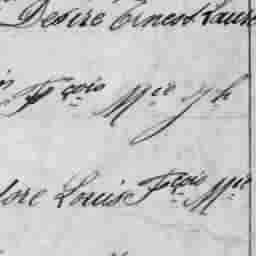 Desire Ernest Laur
Fçois Mie Jh
dore Louis Fçois Mie